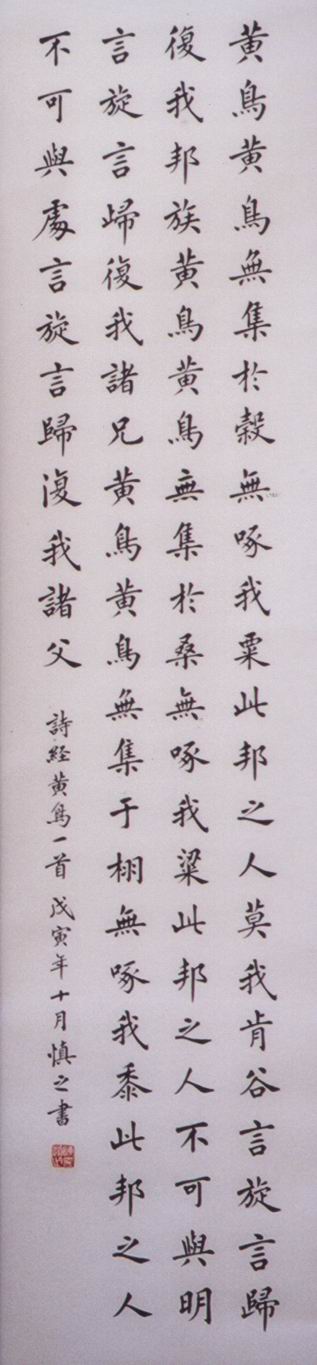 黄鳥黄鳥無集於穀無啄我粟此邦之人莫我肯谷言旋言歸
復我邦族黄鳥黄鳥無集於桑無啄我粱此邦之人不可與明
言旋言歸復我諸兄黄鳥黄鳥無集于栩無啄我黍此邦之人
不可與處言旋言歸復我諸父
詩经黄鳥一首 戊寅年十月慎之書